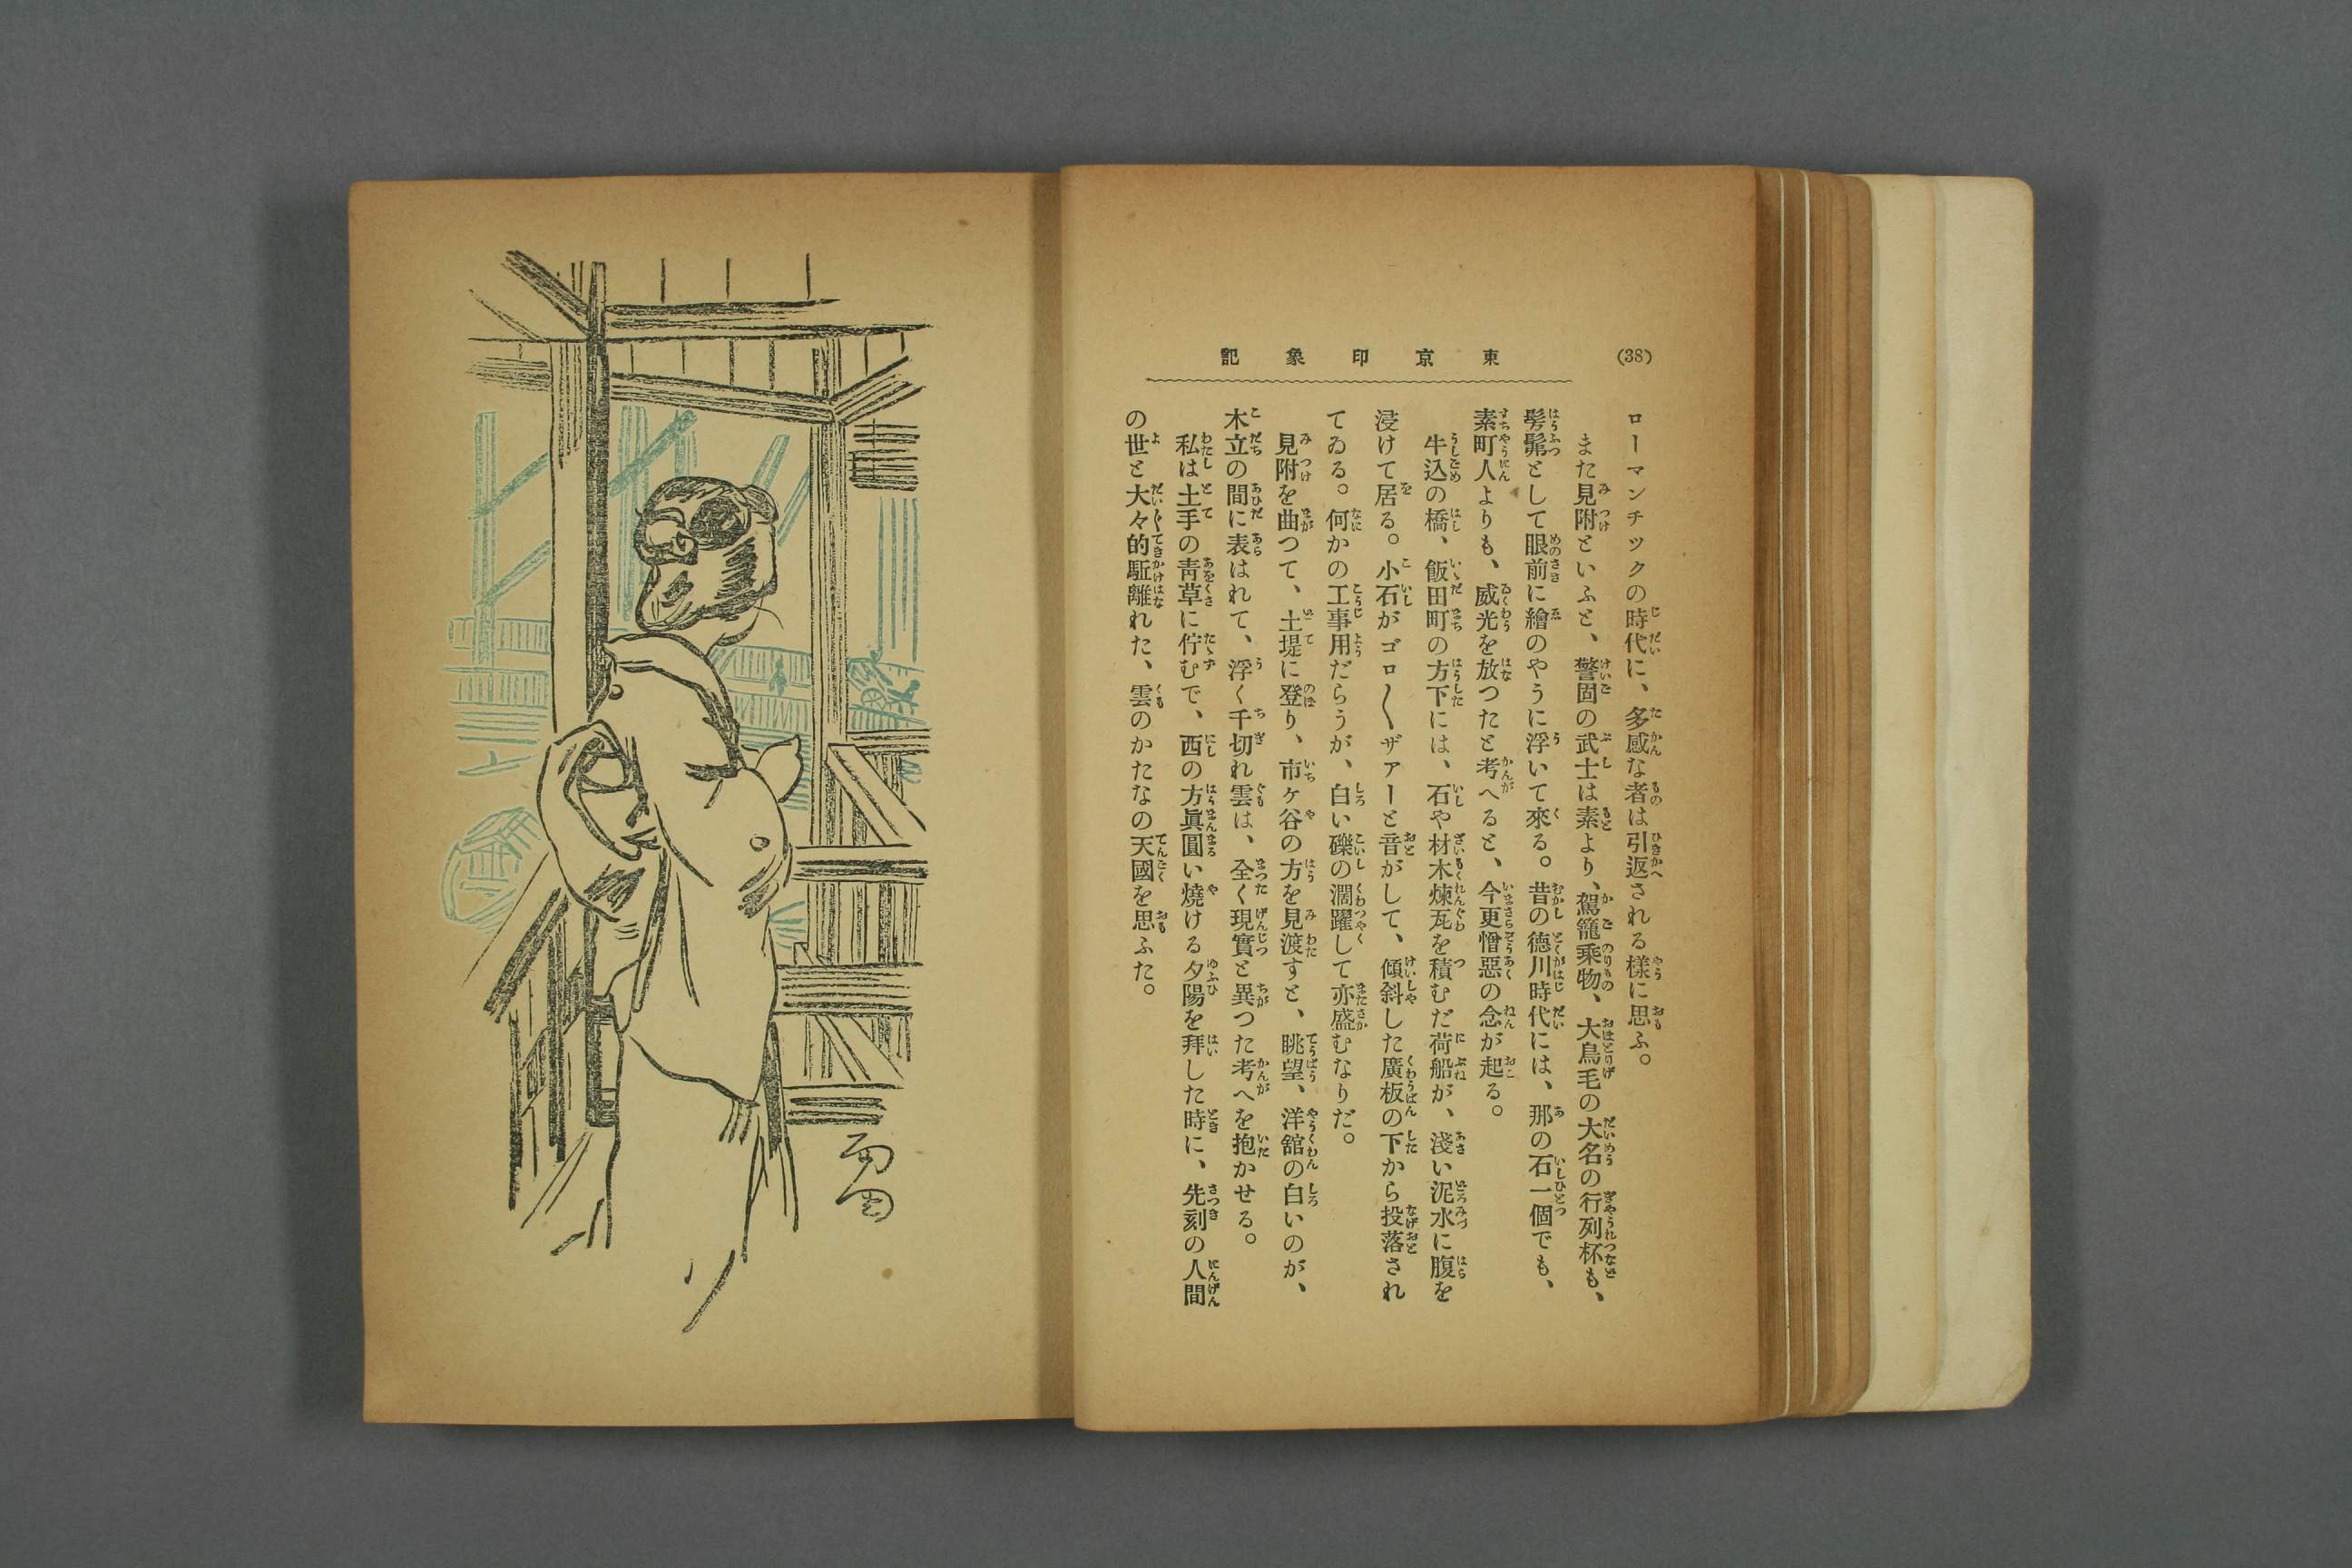 (38)
東京印象記
ローマンチックの時代に、多感な者は引返される樣に思ふ。
また見附といふと、警固の武士は素より、駕籠乘物、大鳥毛の大名の行列杯も、
髣髴として眼前に繪のやうに浮いて來る。昔の德川時代には、那の石一個でも、
素町人よりも、威光を放つたと考へると、今更憎惡の念が起る。
牛込の橋、飯田町の方下には、石や材木煉瓦を積むだ荷船が、淺い泥水に腹を
浸けて居る。小石がゴロ〱ザアーと音がして、傾斜した廣板の下から投落され
てゐる。何かの工事用だらうが、白い礫の濶躍して亦盛むなりだ。
見附を曲つて、土堤に登り、市ヶ谷の方を見渡すと、眺望、洋舘の白いのが、
木立の間に表はれて、浮く千切れ雲は、全く現實と異つた考へを抱かせる。
私は土手の靑草に佇むで、西の方眞圓い燒ける夕陽を拜した時に、先刻の人間
の世と大々的駈離れた、雲のかたなの天國を思ふた。